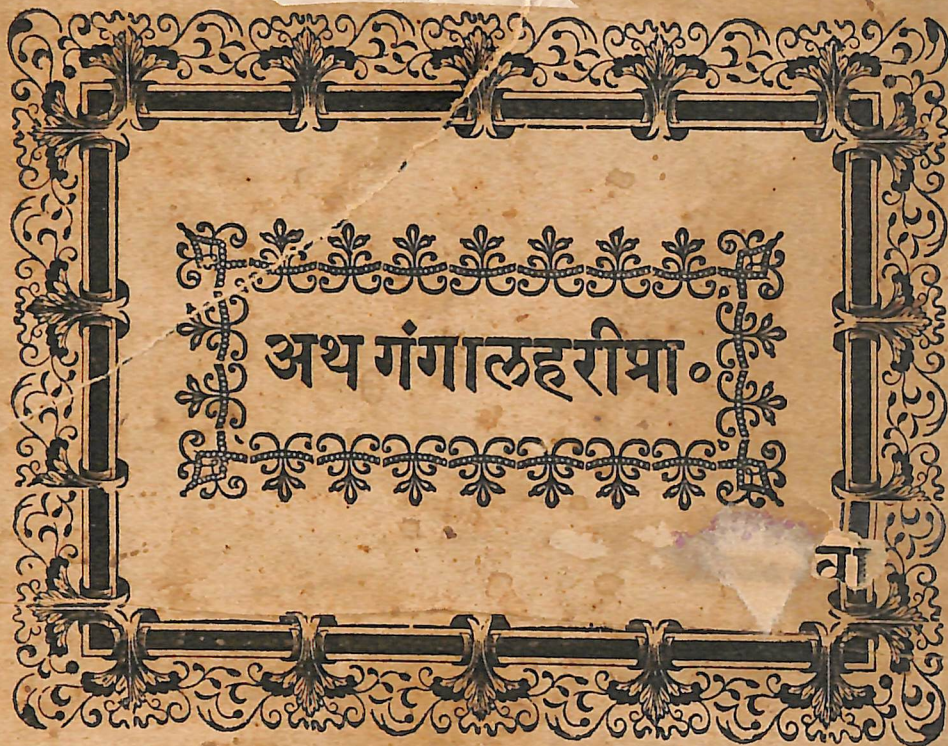 अथ गंगालहरीप्रा॰
वा